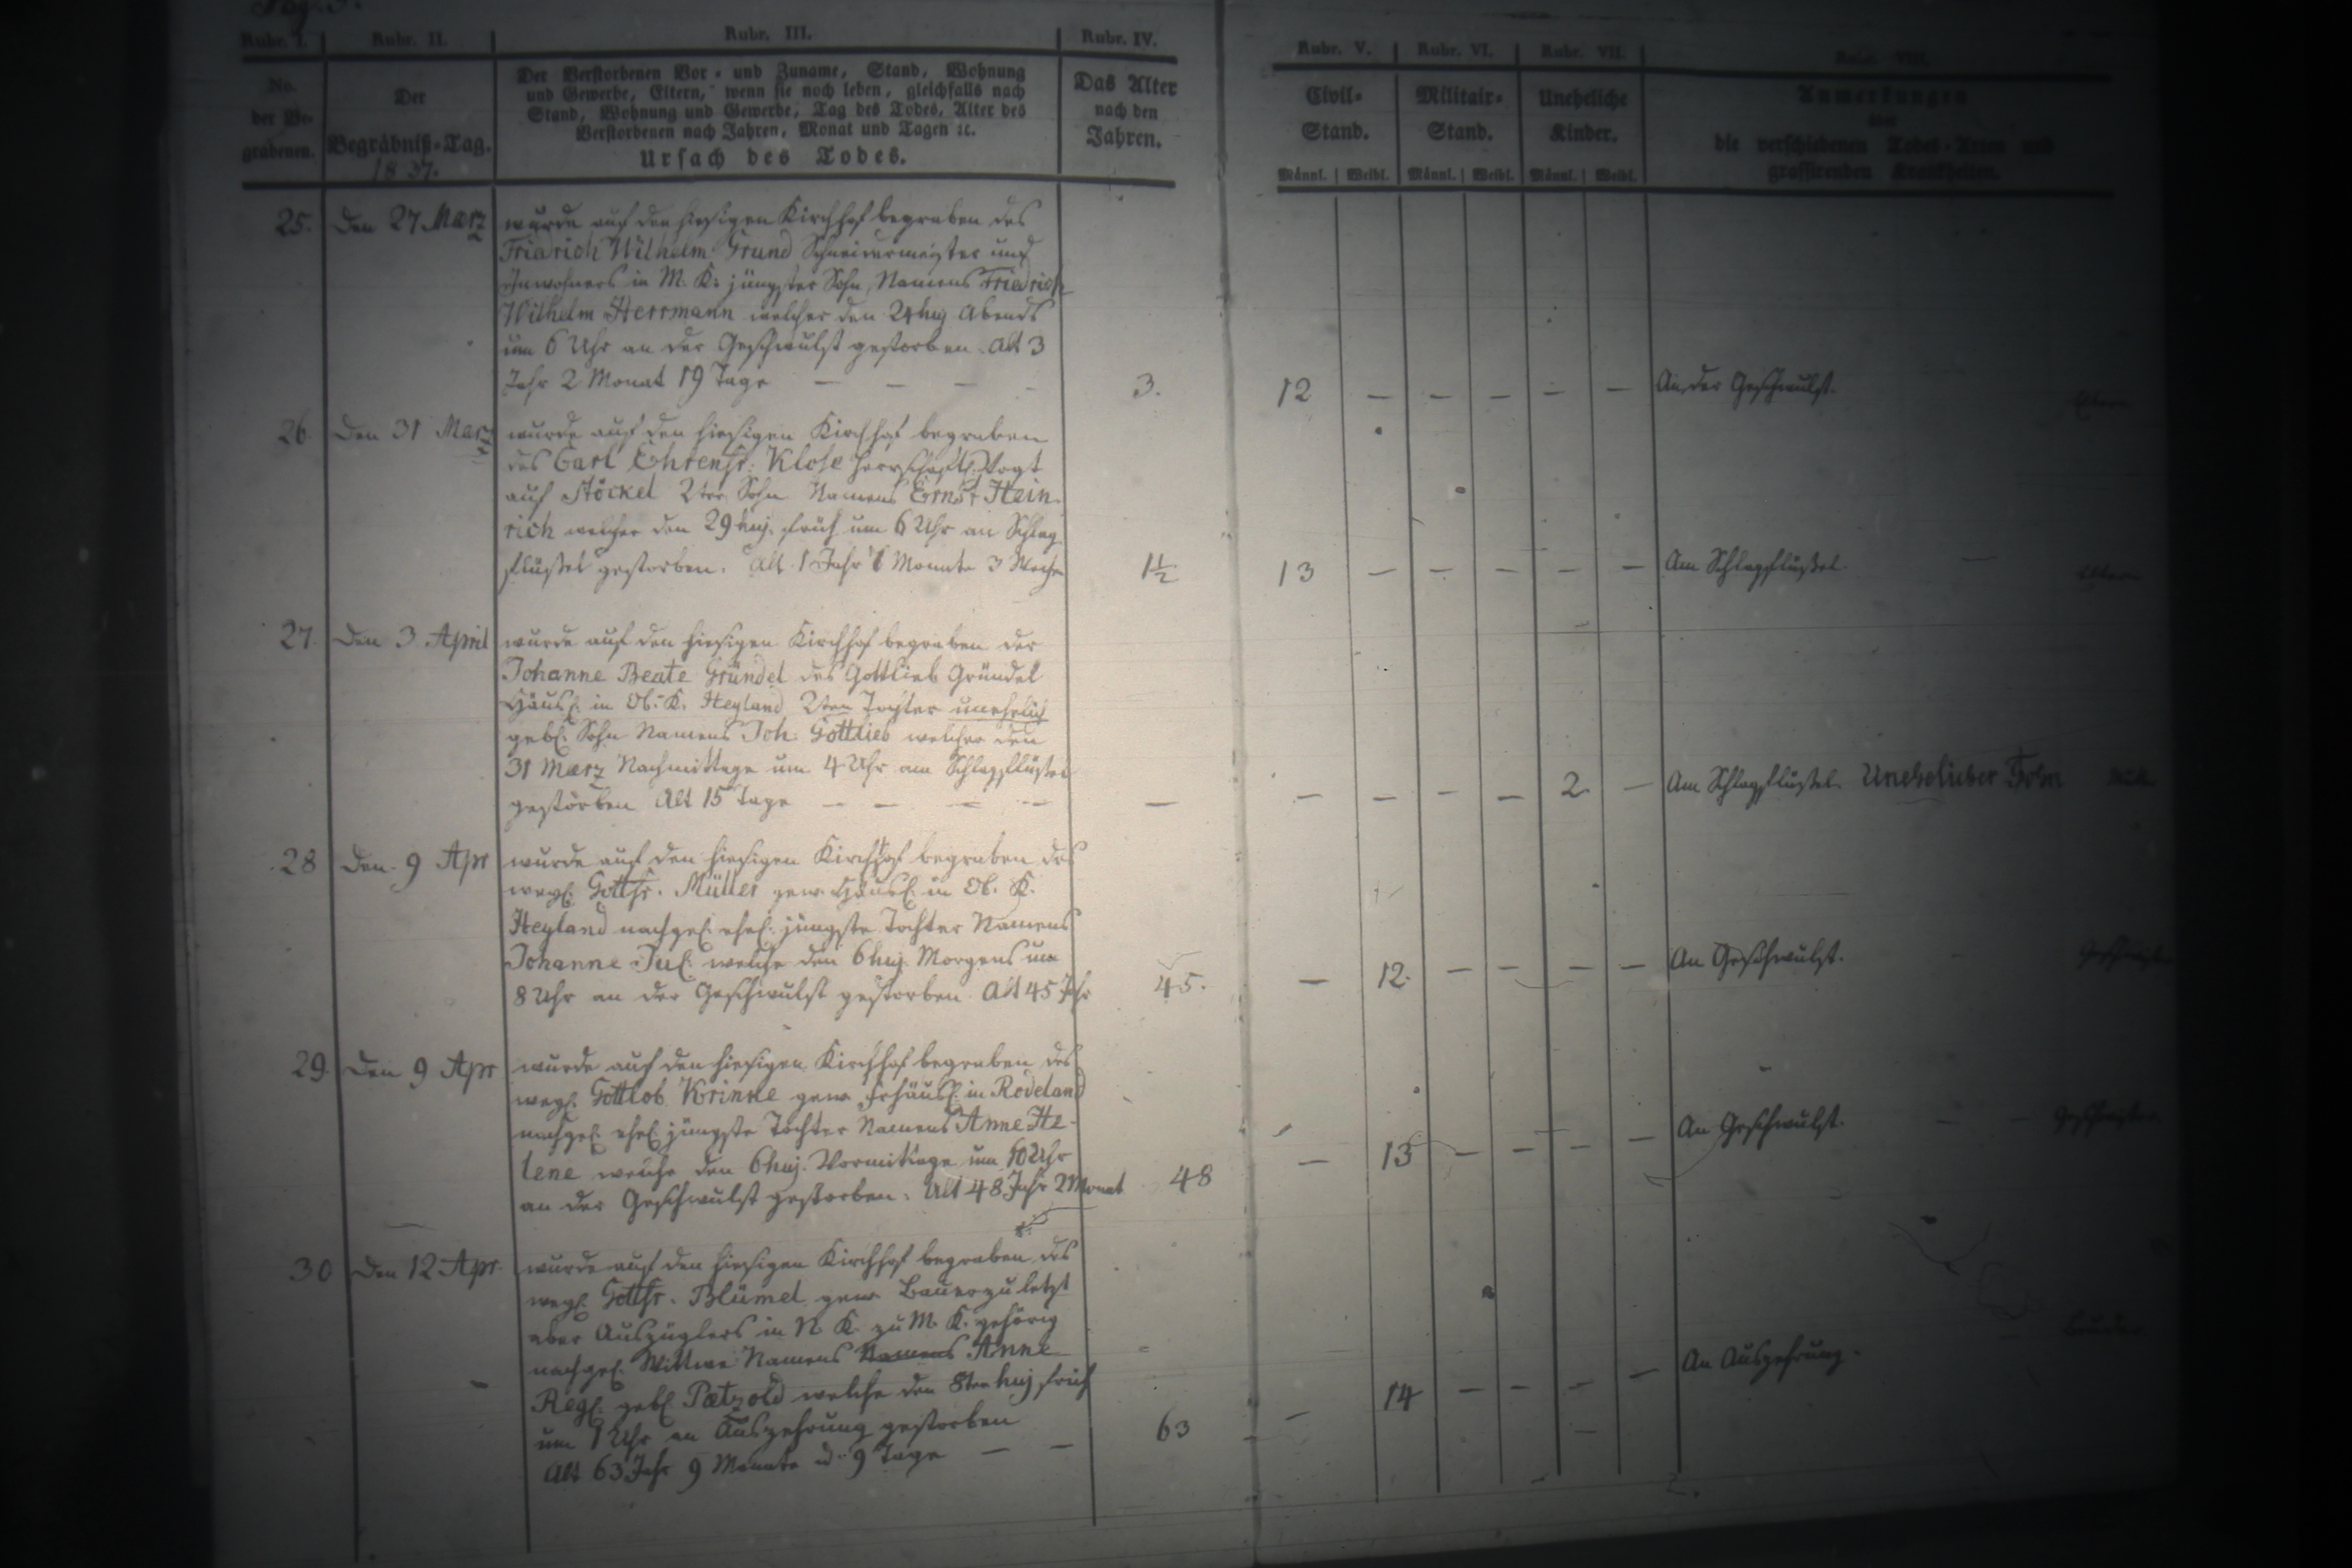 Rubr. I. Rubr. II. Rubr. III. Rubr. IV. Rubr. V. Rubr. VI. Rubr. VII. Rubr. VIII.
No. der Be- grabenen.
Der Begräbniß-Tag. 1837.
Der Verstorbenen Vor- und Zuname, Stand, Wohnung
und Gewerbe, Eltern, wenn sie noch leben, gleichfalls nach
Stand, Wohnung und Gewerbe, Tag des Todes, Alter des
Verstorbenen nach Jahren, Monat und Tagen ꝛc.
Ursach des Todes.
Das Alter nach den Jahren.
Civil- Stand.
Militair- Stand.
Uneheliche Kinder.
Anmerkungen
über
die verschiedenen Todes-Arten und
grassirenden Krankheiten.
Männl. Weibl. Männl. Weibl. Männl. Weibl.
25. Den 27 März wurde auf den hiesigen Kirchhof begraben des
Friedrich Wilhelm Grund Schneidermeister und
Inwohners in M. K. jüngster Sohn, Namens Friedrich
Wilhelm Herrmann welcher den 24 huj Abends
um 6 Uhr an der Geschwulst gestorben. Alt 3
Jahr 2 Monat 19 Tage — — — — 3. 12 — — — — — An der Geschwulst.
26. Den 31 März wurde auf den hiesigen Kirchhof begraben
des Carl Ehrenfr. Klose herrschaftl. Vogt
auf Stöckel 2ter Sohn Namens Ernst Hein-
rich welcher den 29 huj. früh um 6 Uhr an Schlag
flüßel gestorben. Alt 1 Jahr 6 Monate 3 Wochen 1½ 13 — — — — — Am Schlagflüßel. —
27. Den 3 April wurde auf den hiesigen Kirchhof begraben der
Johanne Beate Gründel des Gottlieb Gründel
Häusl. in Ob. K. Heyland 2ten Tochter unehelich
gebl. Sohn Namens Joh. Gottlieb welcher den
31 März Nachmittags um 4 Uhr am Schlagflüßel
gestorben Alt 15 Tage — — — — — — — — — 2. — Am Schlagflüßel. Unehelicher Sohn
28 Den 9 Apr wurde auf den hiesigen Kirchhof begraben des
wegl. Gottfr. Müller gew. Häusl. in Ob. K.
Heyland nachgel. ehel. jüngste Tochter Namens
Johanne Jul. welche den 6 huj. Morgens um
8 Uhr an der Geschwulst gestorben Alt 45 Jahr 45. — 12. — — — — An Geschwulst. —
29. Den 9 Apr wurde auf den hiesigen Kirchhof begraben des
wegl. Gottlob Krinke gew. Frhäusl. in Rodeland
nachgel. ehel. jüngste Tochter Namens Anne He-
lene welche den 6 huj. Vormittags um 10 Uhr
an der Geschwulst gestorben. Alt 48 Jahr 2 Monat 48 — 13 — — — — An Geschwulst. —
30 Den 12 Apr. wurde auf den hiesigen Kirchhof begraben des
wegl. Gottfr. Blümel gew. Bauer zu letzt
aber Auszüglers in N. K. zu M. K. gehörig
nachgel. Wittwe Namens Namens Anne
Regl. gebl. Pætzold welche den 8ten huj früh
um 1 Uhr an Auszehrung gestorben
Alt 63 Jahr 9 Monate u. 9 Tage — — 63 — 14 — — — — An Auszehrung.